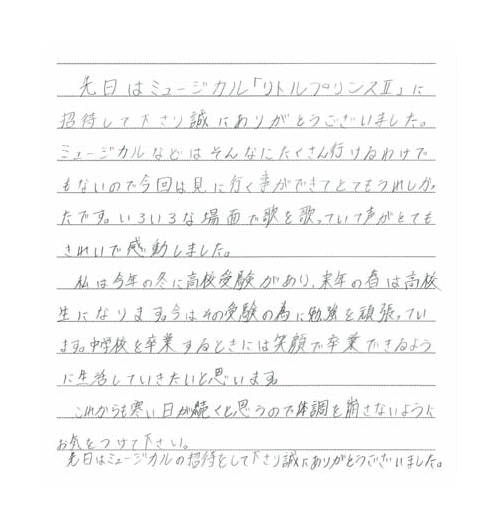 先日はミュージカル「リトルプリンスⅡ」に
招待して下さり誠にありがとうございました。
ミュージカルなどはそんなにたくさん行けるわけで
もないので今回は見に行く事ができてとてもうれしかっ
たです。いろいろな場面で歌を歌っていて声がとても
きれいで感動しました。
私は今年の冬に高校受験があり、来年の春は高校
生になります。今はその受験の為に勉強を頑張ってい
ます。中学校を卒業するときには笑顔で卒業できるよう
に生活していきたいと思います。
これからも寒い日が続くと思うので体調を崩さないように
お気をつけて下さい。
先日はミュージカルの招待をして下さり誠にありがとうございました。